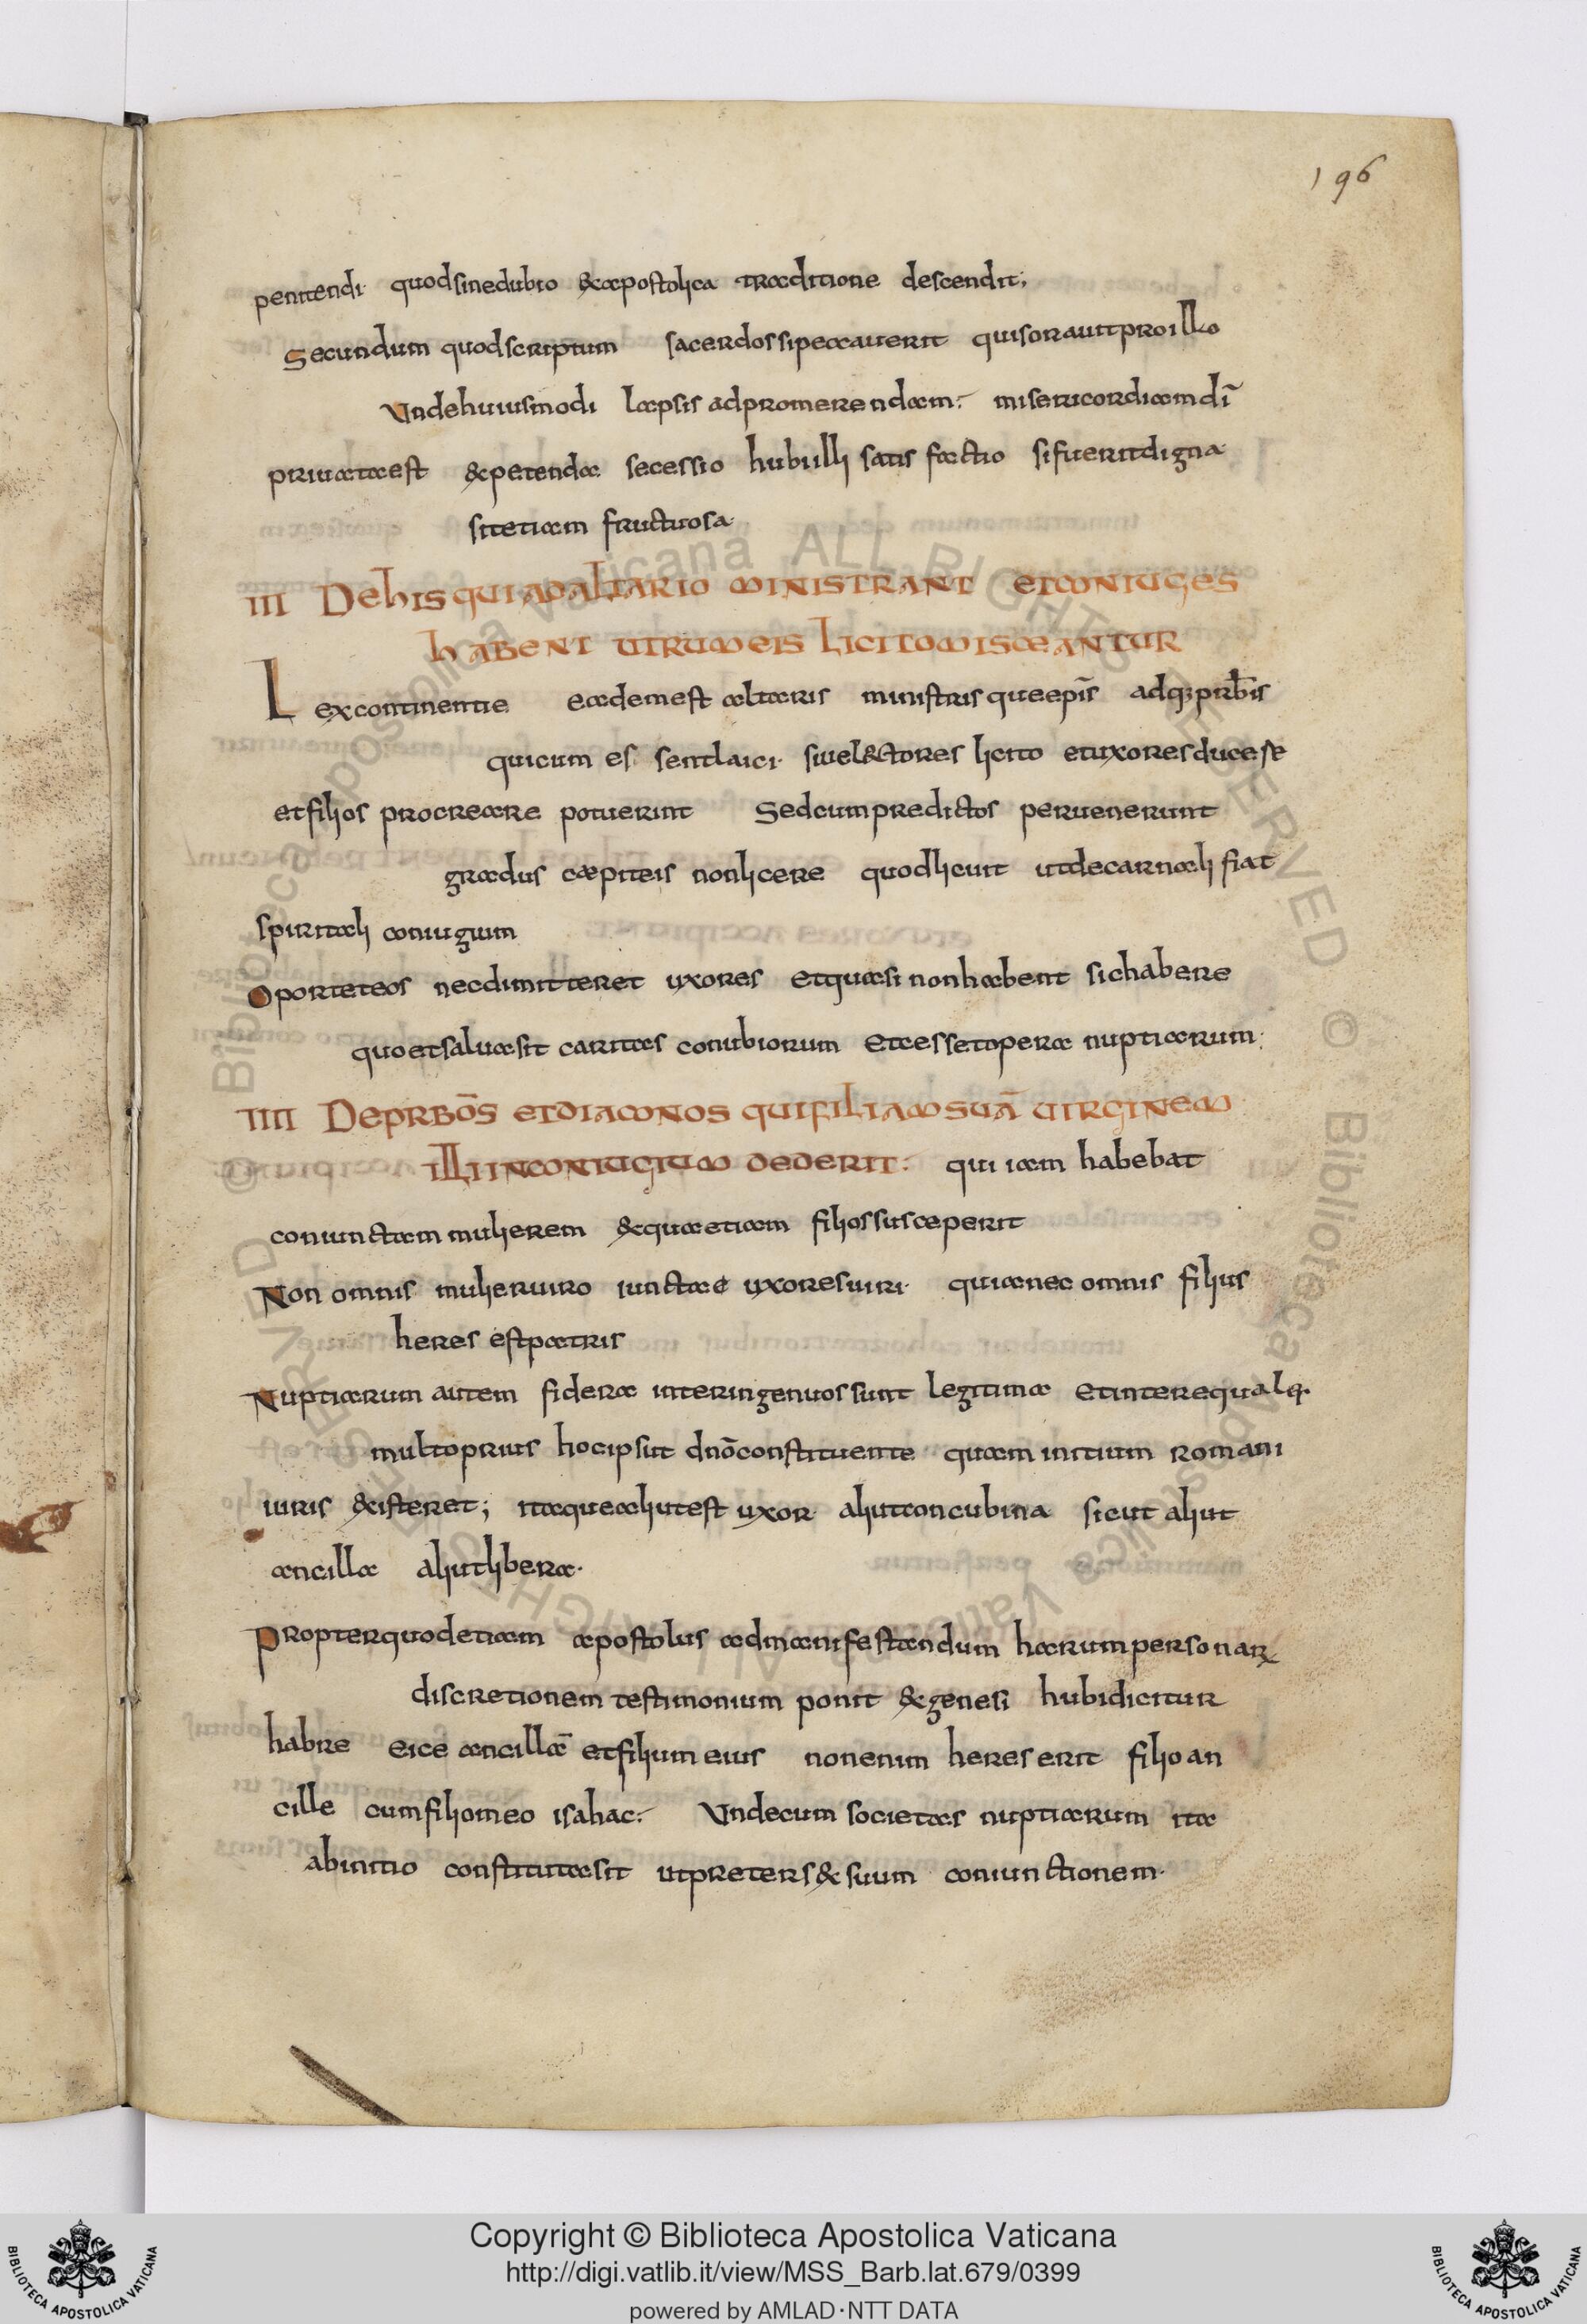 196
penitendi quod sine dubio & apostolica traditione descendit;
Secundum quod scriptum sacerdos si peccaverit quis oravit pro illo
Unde huiusmodi lapsis ad promerendam misericordiam dī
privata est & petenda secessio hubi illi satis factio si fuerit digna
sit etiam fructuosa
III De his qui ad altario ministrant et coniuges
habent utrum eis licito misceantur
Lex continentie eadem est altaris ministris que ep̄is adq; prb̄is
qui cum es sent laici sive l&ctores licito et uxores ducese
et filios procreare potuerint Sed cum predictos pervenerunt
gradus cæpit eis non licere quod licuit ut de carnali fiat
spiritali coniugium
Oportet eos nec dimitteret uxores et quasi non habent sic habere
quo et salva sit caritas conubiorum et cesset opera nuptiarum
IIII De prbōs et diaconos qui filiam suā virginem
illi in coniugium dederit qui iam habebat
coniunctam mulierem & qua etiam filios susceperit
Non omnis mulier viro iuncta e uxores viri quia nec omnis filius
heres est patris
Nuptiarum autem fidera inter ingenuos sunt legitima et inter equaleq.
multo prius hoc ipsut dnō constituente quam initium romani
iuris &isteret; itaque aliut est uxor aliut concubina sicut aliut
ancilla aliut libera
Propter quod etiam apostolus ad manifestandum harum personarꝝ
discretionem testimonium ponit & genesi hubi dicitur
habre eice ancillā et filium eius non enim heres erit filio an
cille cum filio meo isahac. Unde cum societas nuptiarum ita
ab initio constituta sit ut preter s& suum coniunctionem
Copyright © Biblioteca Apostolica Vaticana
http://digi.vatlib.it/view/MSS_Barb.lat.679/0399
powered by AMLAD·NTT DATA